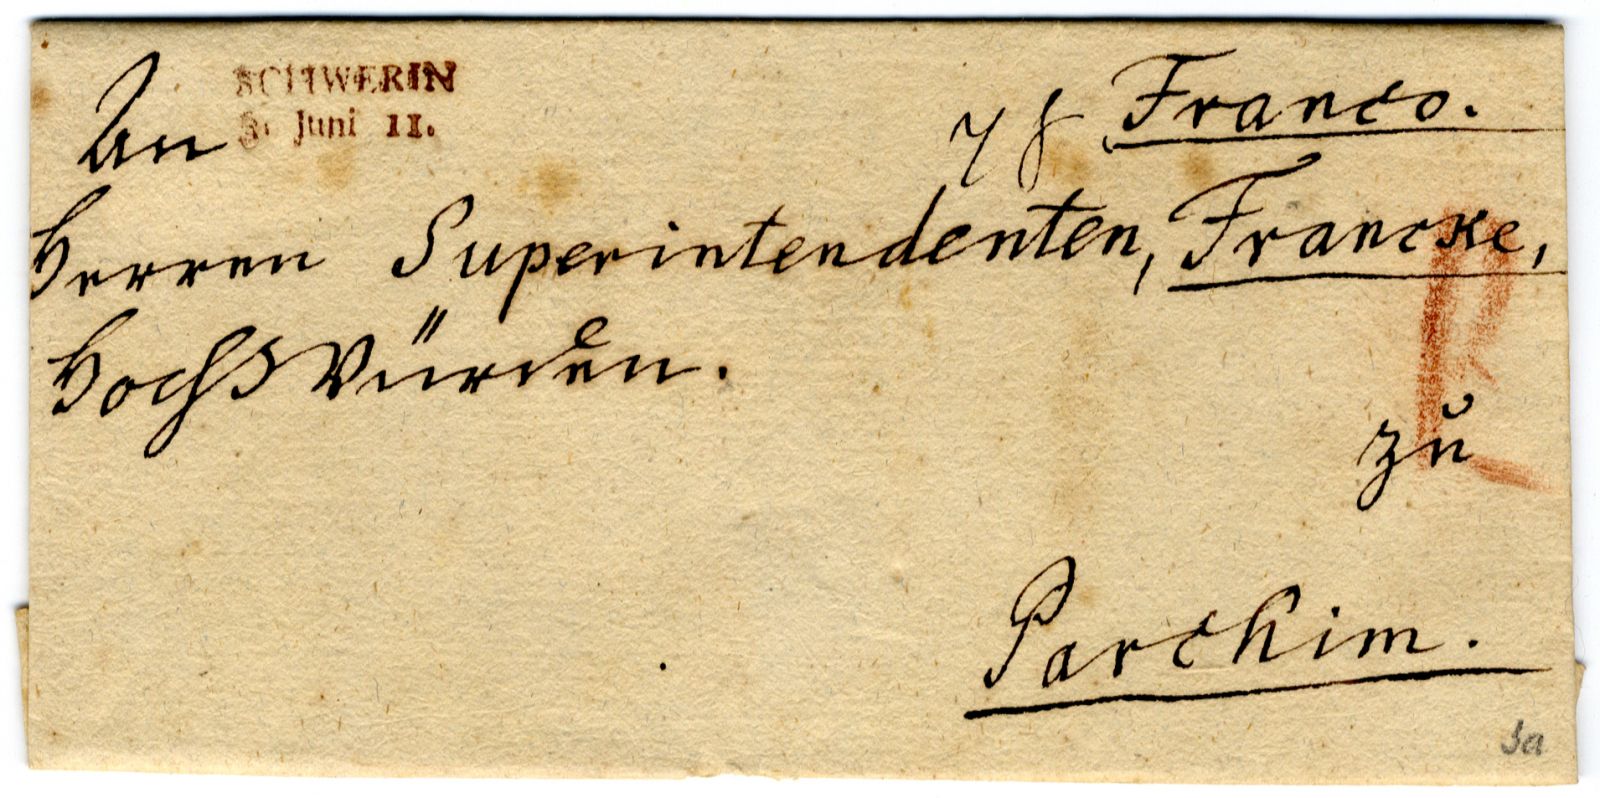 SCHWERIN
3. Juni 11.
Franco.
An
Herren Superintendenten, Francke,
Hochwürden.
zu
Parchim.